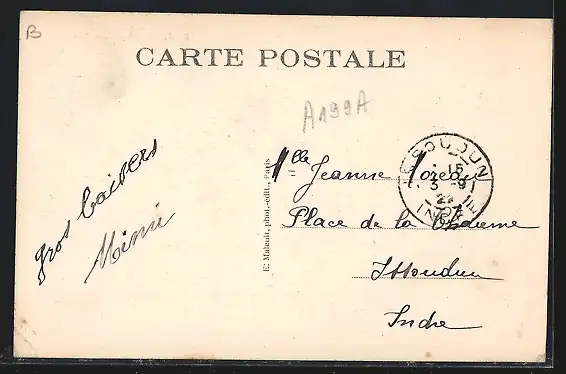 B
CARTE POSTALE
A199A
gros baisers
Mimi
E. Malcuit, phot.-édit., Paris
Mlle Jeanne Moreau
Place de la
Issoudun
Indre
ISSOUDUN
15
3 -9
INDRE